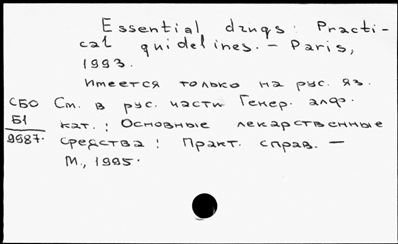 Essential drugs: Practi-
cal guidelines. – Paris,
1993.
Имеется только на рус. яз.
СБО См. в рус. части Генер. алф.
Б1 кат.: Основные лекарственные
9987. средства: Практ. справ. –
М., 1995.